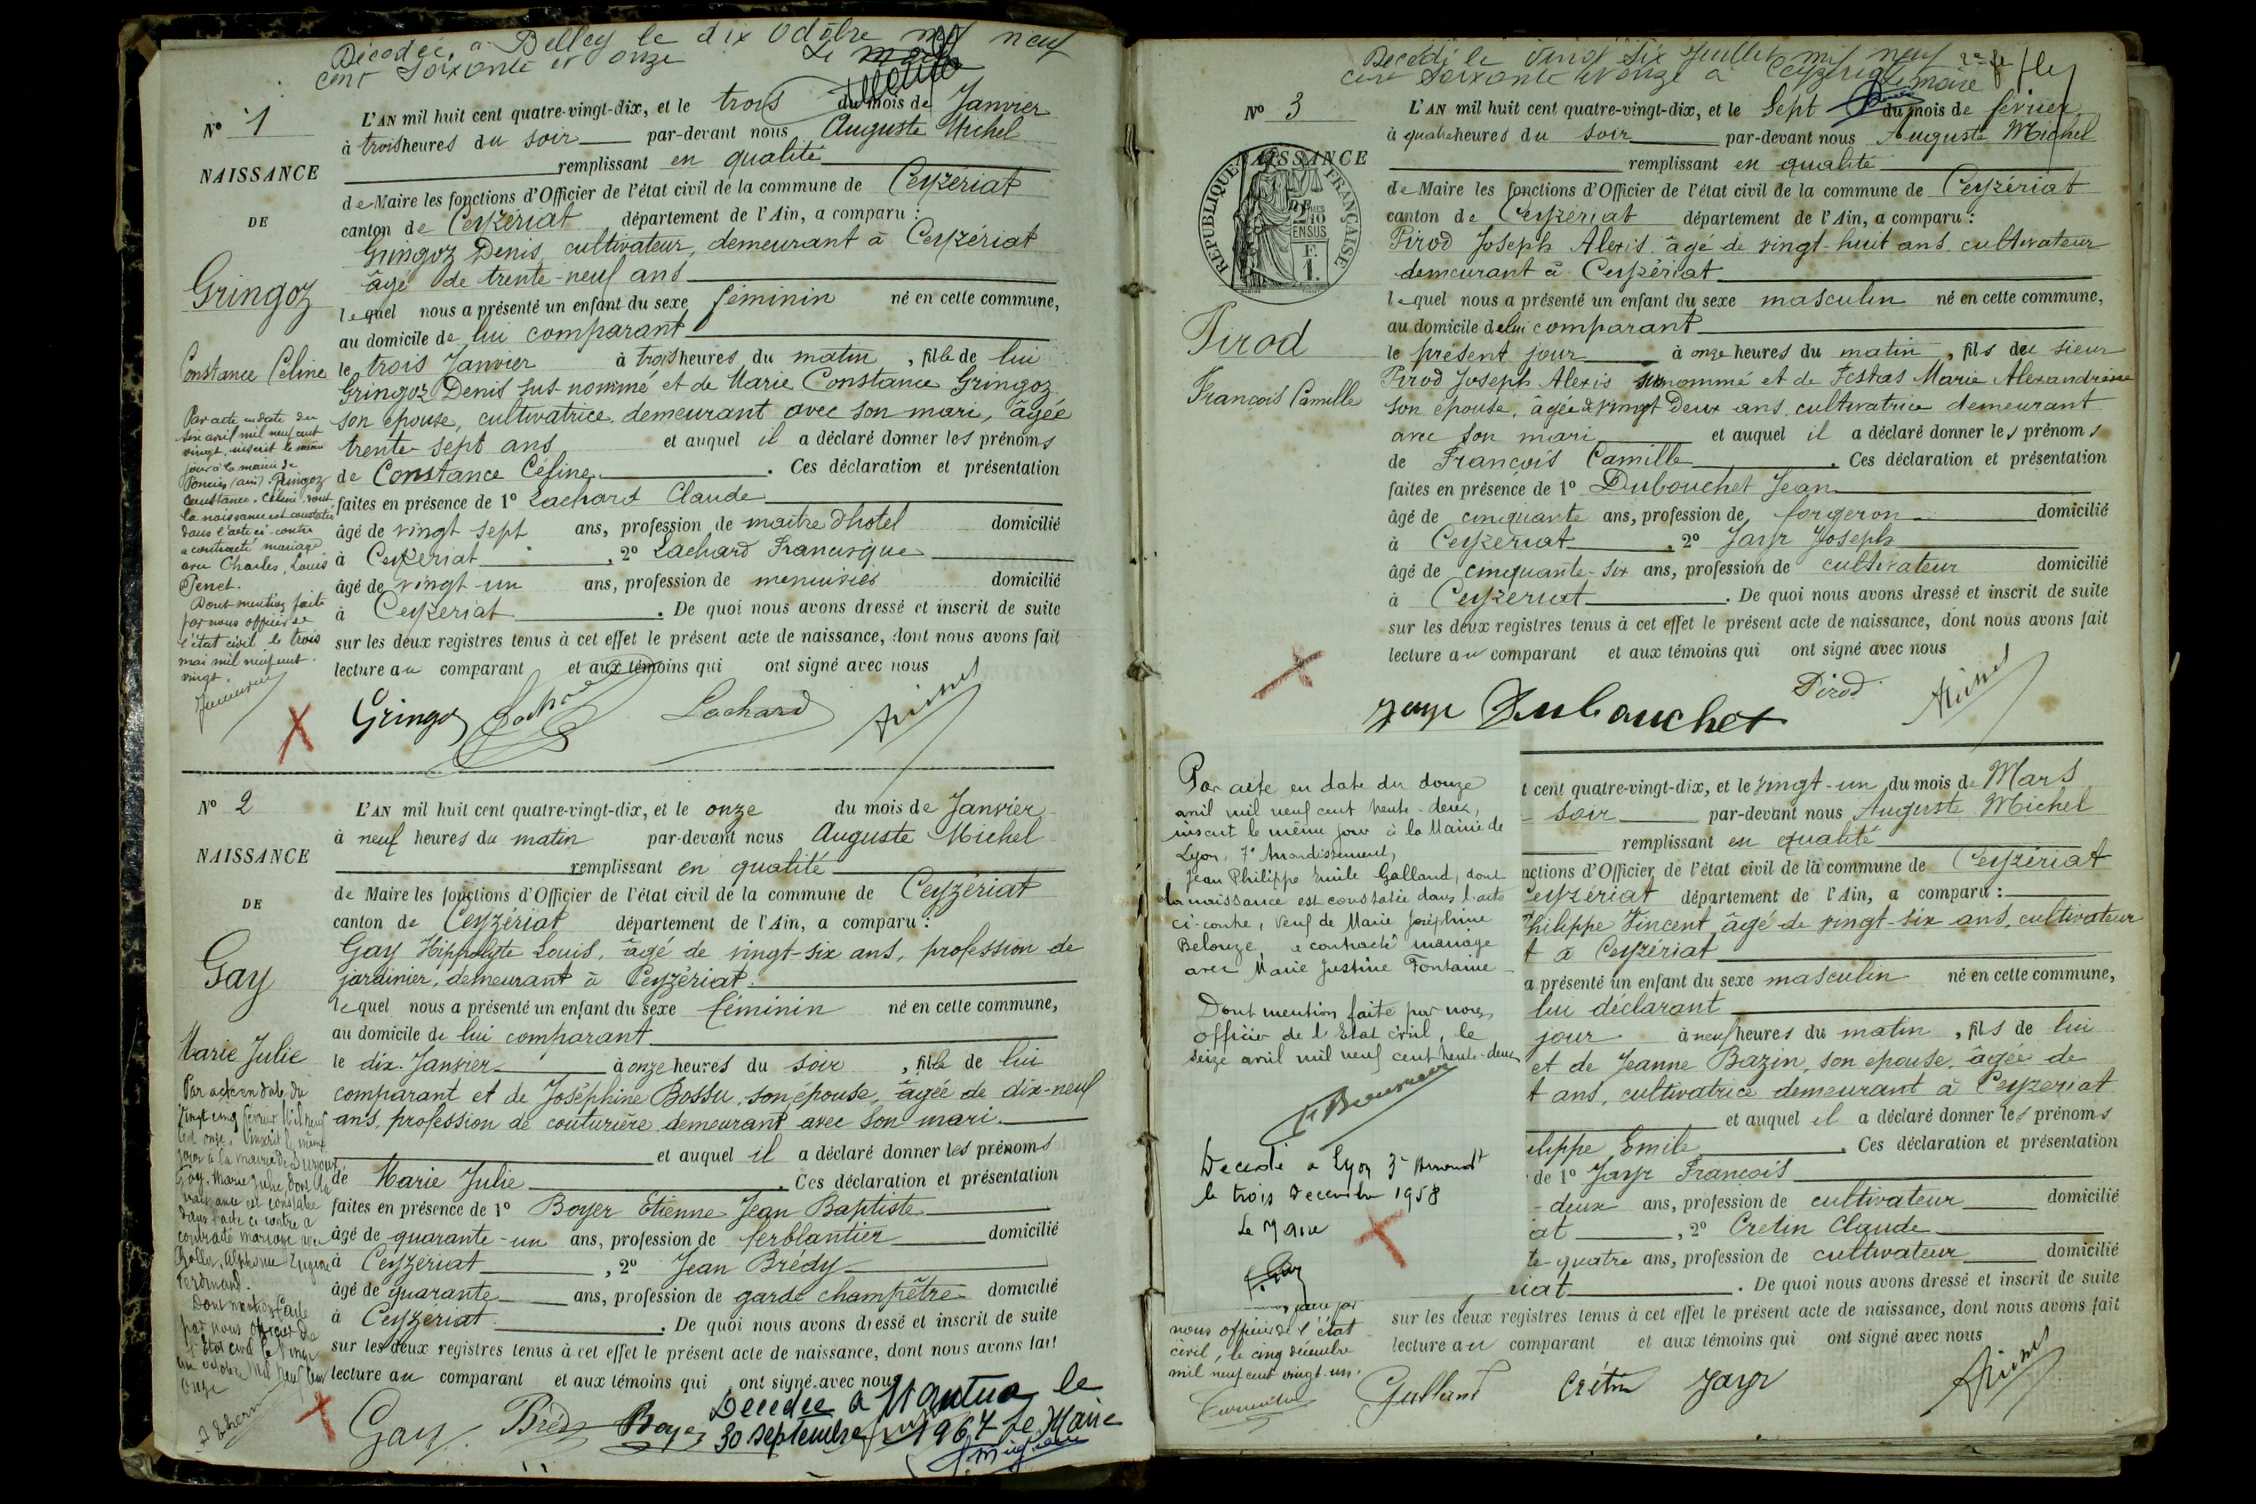 Décédée, à Belley le dix Octobre mil neuf
cent soixante et onze Le maire
N° 1
NAISSANCE
DE
Gringoz
Constance Céline
Par acte en date du
six avril mil neuf cent
vingt, inscrit le même
jour à la mairie de
Poncin (ain). Gringoz
Constance, Céline, dont
la naissance est constatée
dans l'acte ci-contre
a contracté mariage
avec Charles, Louis
Penet.
Dont mention faite
par nous officier de
l'état civil, le trois
mai mil neuf cent
vingt.
L'AN mil huit cent quatre-vingt-dix, et le trois du mois de Janvier
à trois heures du soir par-devant nous Auguste Michel
remplissant en qualité
de Maire les fonctions d'Officier de l'état civil de la commune de Ceyzériat
canton de Ceyzériat département de l'Ain, a comparu :
Gringoz Denis, cultivateur, demeurant à Ceyzériat
âgé de trente-neuf ans
lequel nous a présenté un enfant du sexe féminin né en cette commune,
au domicile de lui comparant
le trois Janvier à trois heures du matin, fille de lui
Gringoz Denis sus nommé et de Marie Constance Gringoz
son épouse, cultivatrice, demeurant avec son mari, âgée
trente-sept ans et auquel il a déclaré donner les prénoms
de Constance Céline. Ces déclaration et présentation
faites en présence de 1° Lachard Claude
âgé de vingt sept ans, profession de maitre d'hotel domicilié
à Ceyzeriat, 2° Lachard Francisque
âgé de vingt-un ans, profession de menuisier domicilié
à Ceyzeriat. De quoi nous avons dressé et inscrit de suite
sur les deux registres tenus à cet effet le présent acte de naissance, dont nous avons fait
lecture au comparant et aux témoins qui ont signé avec nous
Gringoz Lachard
N° 2
NAISSANCE
DE
Gay
Marie Julie
Par acte en date du
vingt cinq février Mil neuf
cent onze, inscrit le même
jour à la mairie de
Gay, Marie Julie, dont la
naissance est constatée
dans l'acte ci contre a
contracté mariage avec
Alphonse Eugène
Ferdinand.
Dont mention faite
par nous officier de
l'Etat civil le vingt
un octobre Mil neuf cent
onze
L'AN mil huit cent quatre-vingt-dix, et le onze du mois de Janvier
à neuf heures du matin par-devant nous Auguste Michel
remplissant en qualité
de Maire les fonctions d'Officier de l'état civil de la commune de Ceyzériat
canton de Ceyzériat département de l'Ain, a comparu :
Gay Hippolyte Louis, âgé de vingt-six ans, profession de
jardinier, demeurant à Ceyzériat.
lequel nous a présenté un enfant du sexe féminin né en cette commune,
au domicile de lui comparant
le dix Janvier à onze heures du soir, fille de lui
comparant et de Joséphine Bossu, son épouse, âgée de dix-neuf
ans, profession de couturière demeurant avec son mari.
et auquel il a déclaré donner les prénoms
de Marie Julie. Ces déclaration et présentation
faites en présence de 1° Boyer Etienne Jean Baptiste
âgé de quarante-un ans, profession de ferblantier domicilié
à Ceyzériat, 2° Jean Brédy
âgé de quarante ans, profession de garde champêtre domicilié
à Ceyzériat. De quoi nous avons dressé et inscrit de suite
sur les deux registres tenus à cet effet le présent acte de naissance, dont nous avons fait
lecture au comparant et aux témoins qui ont signé avec nous
Gay Brédy Boyer
Décédée à Nantua le
30 septembre 1967 Le Maire
Décédé le vingt six Juillet mil neuf
cent soixante et onze à Ceyzériat Le maire
N° 3
NAISSANCE
DE
RÉPUBLIQUE FRANÇAISE
2/10 EN SUS
F.
1.
Pirod
François Camille
L'AN mil huit cent quatre-vingt-dix, et le Sept du mois de février
à quatre heures du soir par-devant nous Auguste Michel
remplissant en qualité
de Maire les fonctions d'Officier de l'état civil de la commune de Ceyzériat
canton de Ceyzériat département de l'Ain, a comparu :
Pirod Joseph Alexis âgé de vingt-huit ans cultivateur
demeurant à Ceyzériat
lequel nous a présenté un enfant du sexe masculin né en cette commune,
au domicile de lui comparant
le présent jour à onze heures du matin, fils de sieur
Pirod Joseph Alexis susnommé et de Festas Marie Alexandrine
son épouse, âgée de vingt Deux ans cultivatrice demeurant
avec son mari et auquel il a déclaré donner les prénoms
de François Camille. Ces déclaration et présentation
faites en présence de 1° Dubouchet Jean
âgé de cinquante ans, profession de forgeron domicilié
à Ceyzériat, 2° Jayr Joseph
âgé de cinquante-six ans, profession de cultivateur domicilié
à Ceyzeriat. De quoi nous avons dressé et inscrit de suite
sur les deux registres tenus à cet effet le présent acte de naissance, dont nous avons fait
lecture au comparant et aux témoins qui ont signé avec nous
Jayr Dubouchet Pirod
Par acte en date du douze
avril mil neuf cent trente-deux,
inscrit le même jour à la Mairie de
Lyon, 7e Arrondissement,
Jean Philippe Emile Galland, dont
la naissance est constatée dans l'acte
ci-contre, veuf de Marie Joséphine
Belouze, a contracté mariage
avec Marie Justine Fontaine
Dont mention faite par nous,
officier de l'Etat civil, le
seize avril mil neuf cent trente-deux
Décédé à Lyon 3e Arrondt
le trois Decembre 1958
Le Maire
nous officier de l'état
civil, le cinq décembre
mil neuf cent vingt-un.
t cent quatre-vingt-dix, et le vingt-un du mois de Mars
soir par-devant nous Auguste Michel
remplissant en qualité
nctions d'Officier de l'état civil de la commune de Ceyzériat
Ceyzériat département de l'Ain, a comparu :
Philippe Vincent âgé de vingt-six ans, cultivateur
t à Ceyzériat
a présenté un enfant du sexe masculin né en cette commune,
lui déclarant
jour à neuf heures du matin, fils de lui
et de Jeanne Bazin, son épouse, âgée de
t ans, cultivatrice demeurant à Ceyzeriat
et auquel il a déclaré donner les prénoms
ilippe Emile. Ces déclaration et présentation
de 1° Jayr François
-deux ans, profession de cultivateur domicilié
iat, 2° Cretin Claude
te-quatre ans, profession de cultivateur domicilié
riat. De quoi nous avons dressé et inscrit de suite
sur les deux registres tenus à cet effet le présent acte de naissance, dont nous avons fait
lecture au comparant et aux témoins qui ont signé avec nous
Galland Crétin Jayr